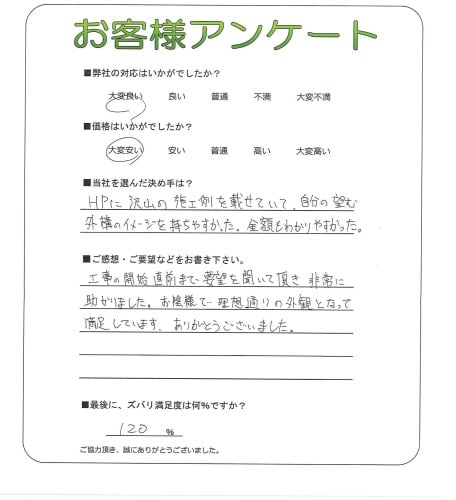 お客様アンケート
■弊社の対応はいかがでしたか？
大変良い 良い 普通 不満 大変不満
■価格はいかがでしたか？
大変安い 安い 普通 高い 大変高い
■当社を選んだ決め手は？
HPに沢山の施工例を載せていて、自分の望む
外構のイメージを持ちやすかった。金額もわかりやすかった。
■ご感想・ご要望などをお書き下さい。
工事の開始直前まで要望を聞いて頂き非常に
助かりました。お陰様で理想通りの外観となって
満足しています、ありがとうございました。
■最後に、ズバリ満足度は何％ですか？
120 ％
ご協力頂き、誠にありがとうございました。